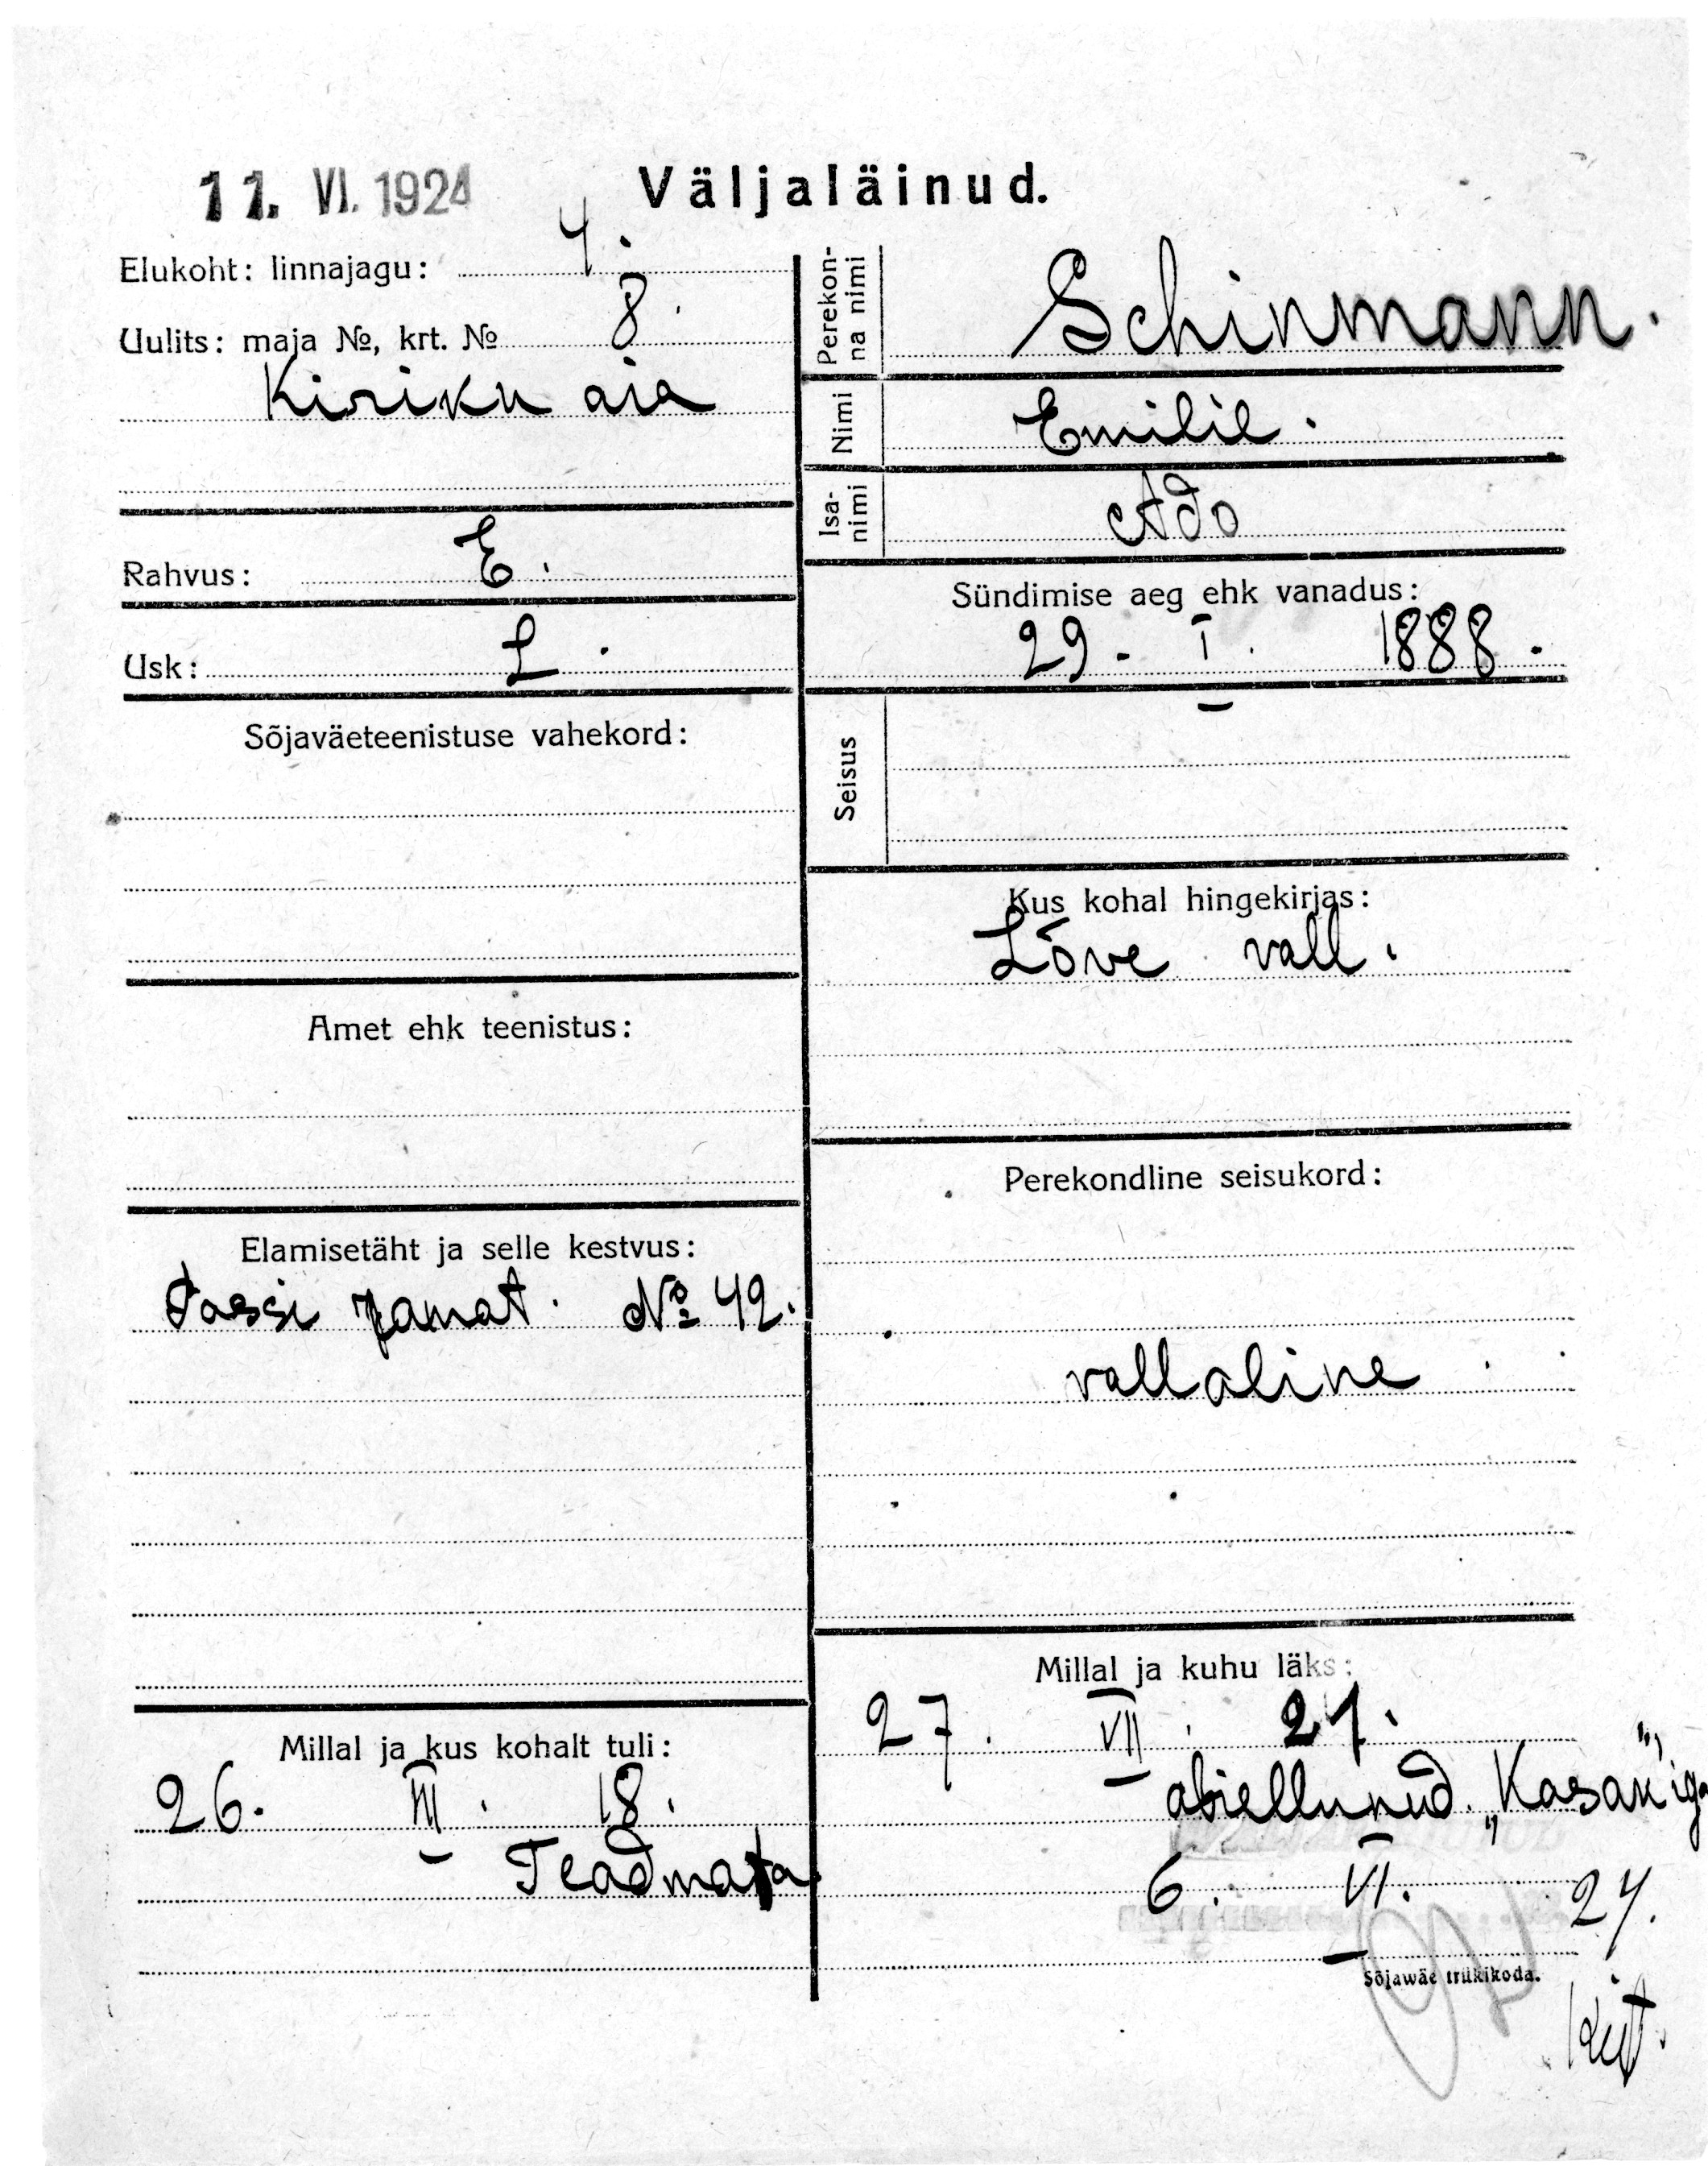 11. VI. 1924
Väljaläinud.
Elukoht: linnajagu: 4.
Uulits: maja №, krt. № 8.
Kiriku aia
Rahvus: E.
Usk: L.
Sõjaväeteenistuse vahekord:
Amet ehk teenistus:
Elamisetäht ja selle kestvus:
Passi ramat. № 42.
Millal ja kus kohalt tuli:
26. III. 18.
Teadmata
Perekon-
na nimi
Schinmann.
Nimi
Emilie.
Isa-
nimi
Ado
Sündimise aeg ehk vanadus:
29. I. 1888.
Seisus
Kus kohal hingekirjas:
Lõve vall.
Perekondline seisukord:
vallaline
Millal ja kuhu läks:
27. VII. 21.
abiellunud „Kasak"iga
6. VI. 24.
Sõjawäe trükikoda.